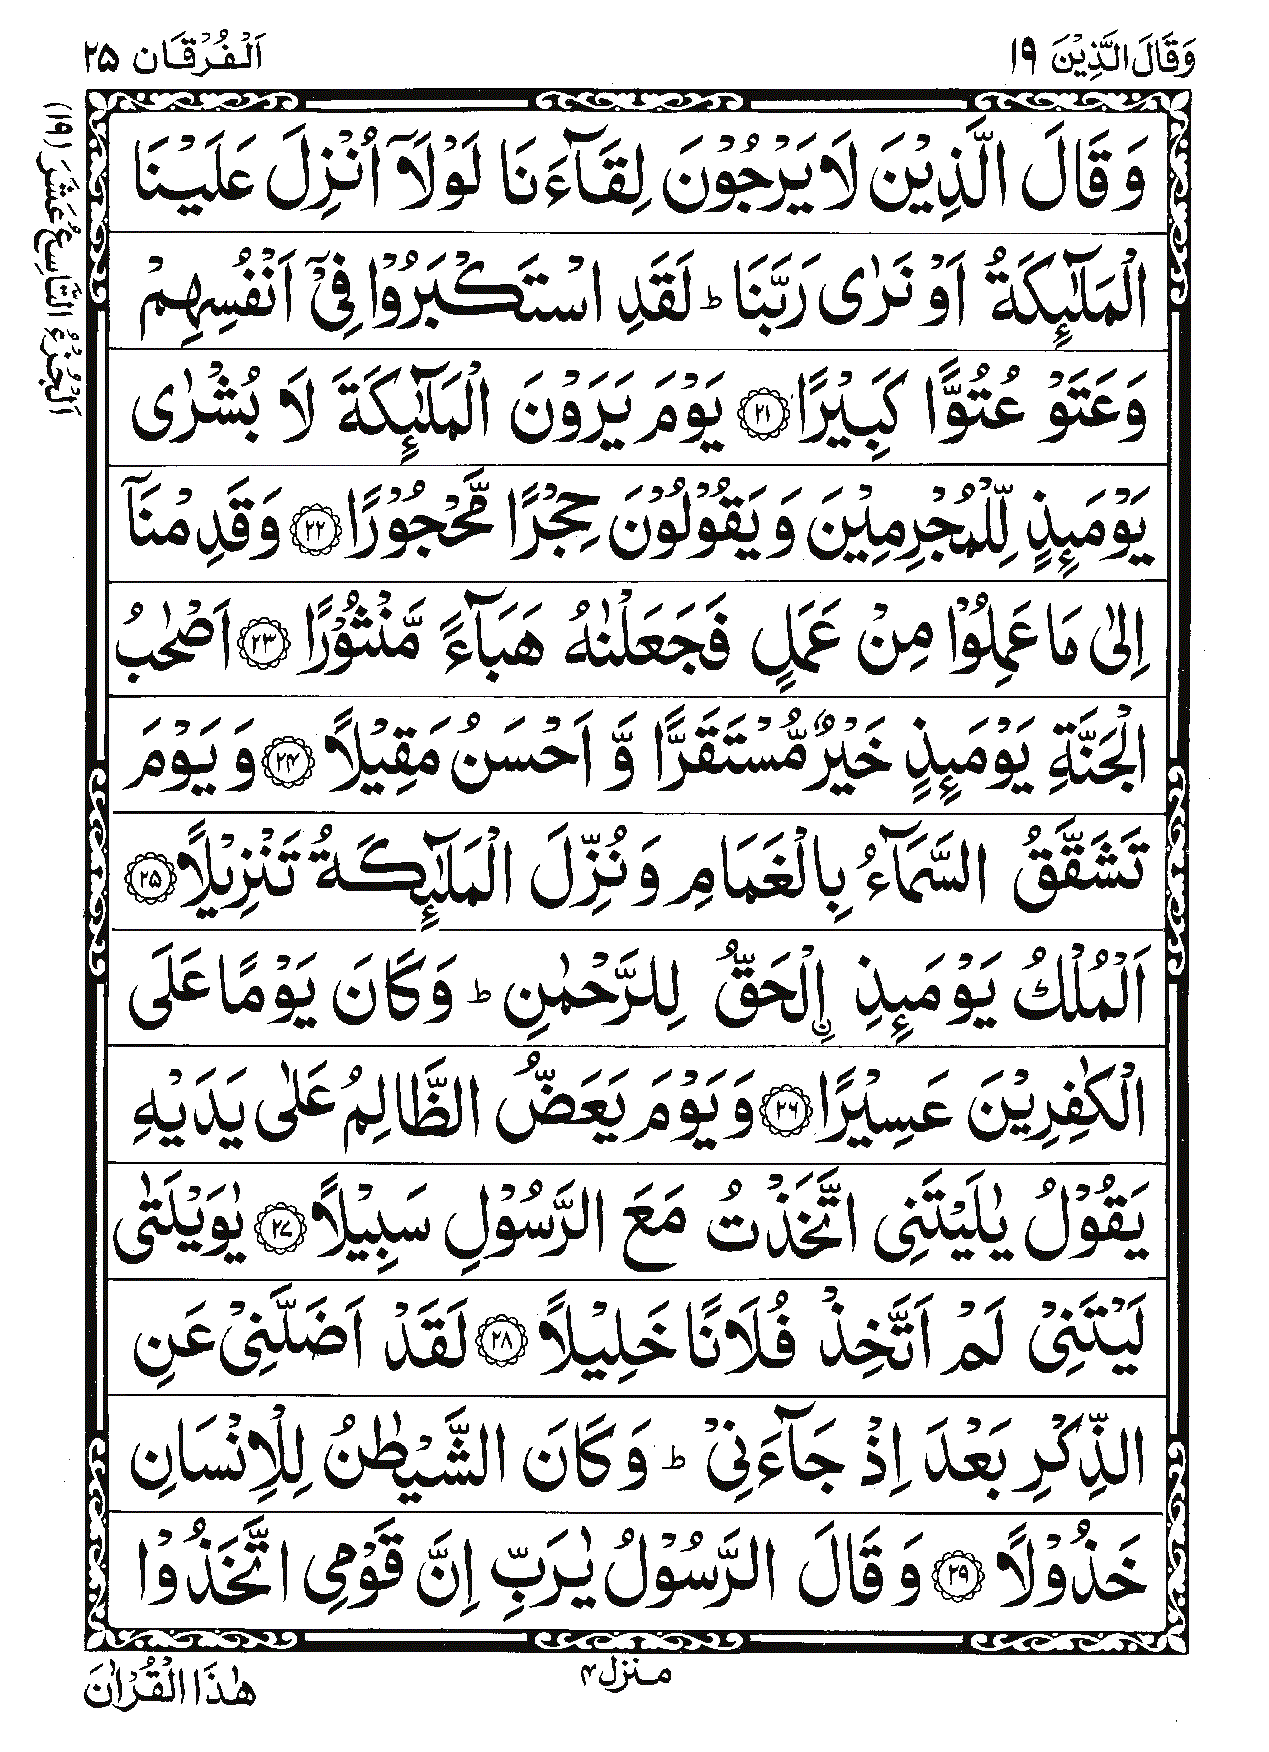 وَقَالَ الَّذِيْنَ ١٩
اَلْفُرْقَان ٢٥
اَلْجُزْءُ التَّاسِعُ عَشَرَ (١٩)
وَقَالَ الَّذِيْنَ لَا يَرْجُوْنَ لِقَآءَنَا لَوْلَآ اُنْزِلَ عَلَيْنَا
الْمَلٰٓئِكَةُ اَوْ نَرٰى رَبَّنَا ؕ لَقَدِ اسْتَكْبَرُوْا فِىْۤ اَنْفُسِهِمْ
وَعَتَوْ عُتُوًّا كَبِيْرًا ٢١ يَوْمَ يَرَوْنَ الْمَلٰٓئِكَةَ لَا بُشْرٰى
يَوْمَئِذٍ لِّلْمُجْرِمِيْنَ وَيَقُوْلُوْنَ حِجْرًا مَّحْجُوْرًا ٢٢ وَقَدِمْنَآ
اِلٰى مَا عَمِلُوْا مِنْ عَمَلٍ فَجَعَلْنٰهُ هَبَآءً مَّنْثُوْرًا ٢٣ اَصْحٰبُ
الْجَنَّةِ يَوْمَئِذٍ خَيْرٌ مُّسْتَقَرًّا وَّ اَحْسَنُ مَقِيْلًا ٢٤ وَيَوْمَ
تَشَقَّقُ السَّمَآءُ بِالْغَمَامِ وَنُزِّلَ الْمَلٰٓئِكَةُ تَنْزِيْلًا ٢٥
اَلْمُلْكُ يَوْمَئِذِ ۨالْحَقُّ لِلرَّحْمٰنِ ؕ وَكَانَ يَوْمًا عَلَى
الْكٰفِرِيْنَ عَسِيْرًا ٢٦ وَيَوْمَ يَعَضُّ الظَّالِمُ عَلٰى يَدَيْهِ
يَقُوْلُ يٰلَيْتَنِى اتَّخَذْتُ مَعَ الرَّسُوْلِ سَبِيْلًا ٢٧ يٰوَيْلَتٰى
لَيْتَنِىْ لَمْ اَتَّخِذْ فُلَانًا خَلِيْلًا ٢٨ لَقَدْ اَضَلَّنِىْ عَنِ
الذِّكْرِ بَعْدَ اِذْ جَآءَنِىْ ؕ وَكَانَ الشَّيْطٰنُ لِلْاِنْسَانِ
خَذُوْلًا ٢٩ وَقَالَ الرَّسُوْلُ يٰرَبِّ اِنَّ قَوْمِى اتَّخَذُوْا
منزل ٤
هٰذَا الْقُرْاٰنَ